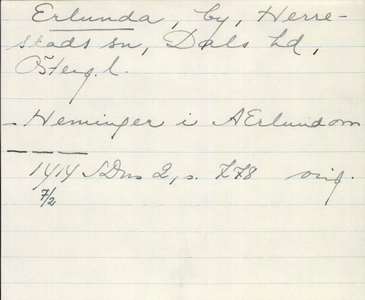 Erlunda, by, Herre-
stads sn, Dals hd,
Östergl.
- Heminger i AErlundom
1414 SDns 2, s. 778 orig.
7/2